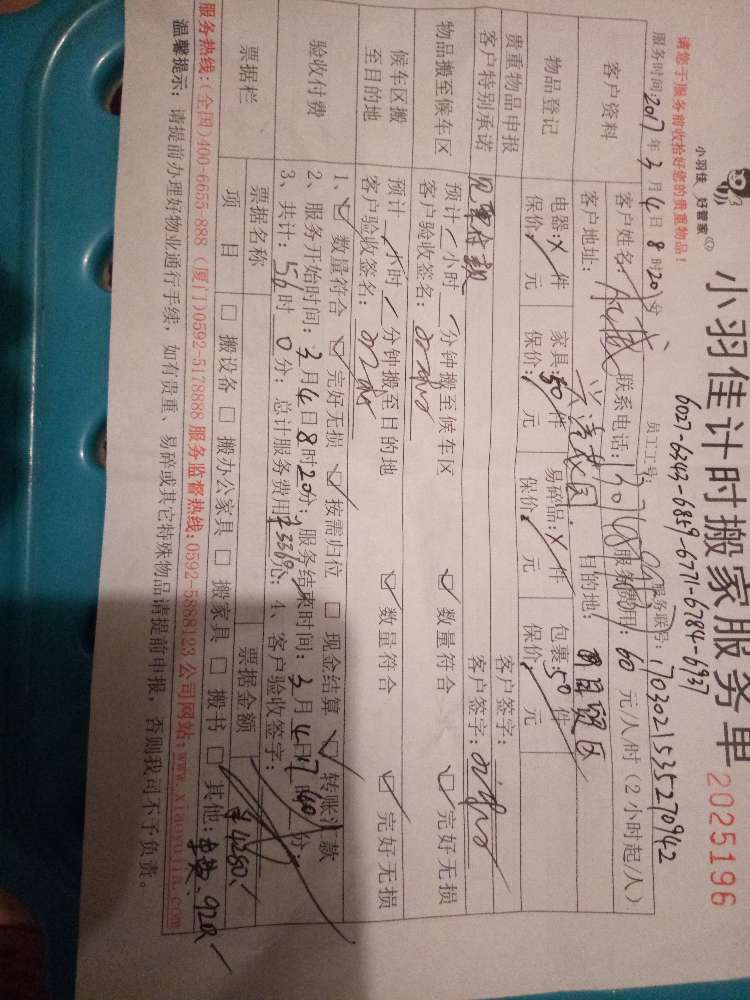 小羽佳 好管家
小羽佳计时搬家服务单 2025196
6027-6343-6859-6771-6784-6937
请您于服务前收拾好您的贵重物品！ 员工工号: 服务联号: 1703021535270942
服务时间: 2017年3月4日8时20分 服务费用: 60元/人/时（2小时起/人）
客户资料
客户姓名: 联系电话:
客户地址: 目的地:
物品登记
电器: 件 家具: 50件 易碎品: 件 包裹: 50件
保价: 元 保价: 元 保价: 元 保价: 元
贵重物品申报 客户签字:
客户特别承诺 客户签字:
物品搬至候车区
预计 小时 分钟搬至候车区 数量符合 完好无损
客户验收签名:
候车区搬至目的地
预计 小时 分钟搬至目的地 数量符合 完好无损
客户验收签名:
验收付费
1、 数量符合 完好无损 按需归位 现金结算 转账 款
2、服务开始时间: 3月4日8时20分; 服务结束时间: 3月4日17时40分;
3、共计: 56时0分; 总计服务费用¥3360元; 4、客户验收签字:
票据栏
票据名称 票据金额 ¥4280
项目 搬设备 搬办公家具 搬家具 搬书 其他: 920
服务热线:(全国)400-6655-888 (厦门)0592-5178888 服务监督热线:0592-5888123 公司网站:www.xiaoyujia.com
温馨提示: 请提前办理好物业通行手续，如有贵重、易碎或其它特殊物品请提前申报，否则我司不予负责。